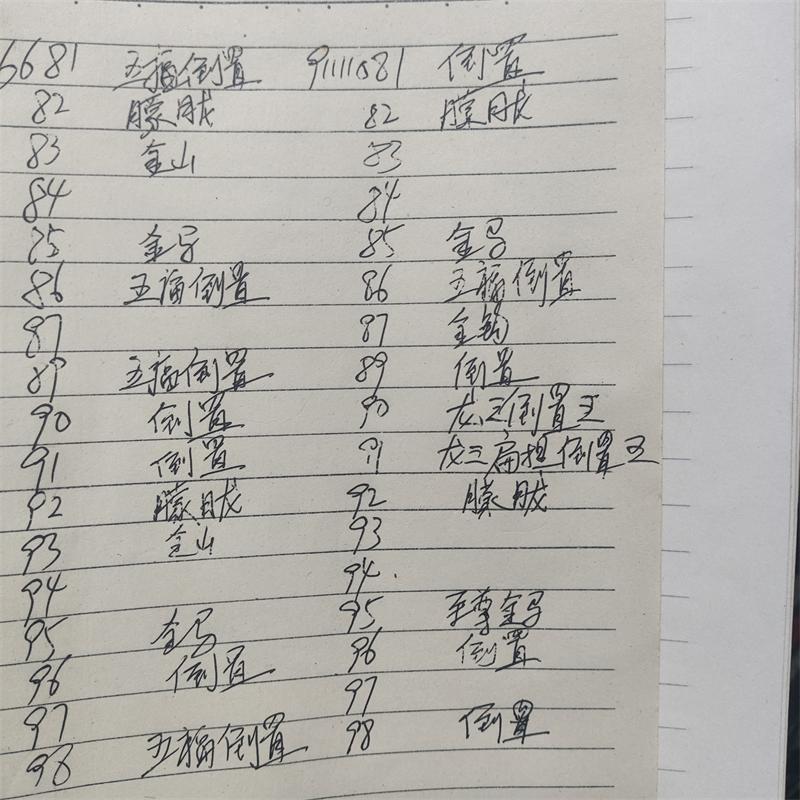 6681 五福倒置 9111081 倒置
82 朦胧 82 朦胧
83 金山 83
84 84
85 金号 85 金号
86 五福倒置 86 五福倒置
87 87 金钩
89 五福倒置 89 倒置
90 倒置 90 龙三倒置王
91 倒置 91 龙三扁担倒置王
92 朦胧 92 朦胧
93 金山 93
94 94
95 金号 95 至尊金号
96 倒置 96 倒置
97 97
98 五福倒置 98 倒置